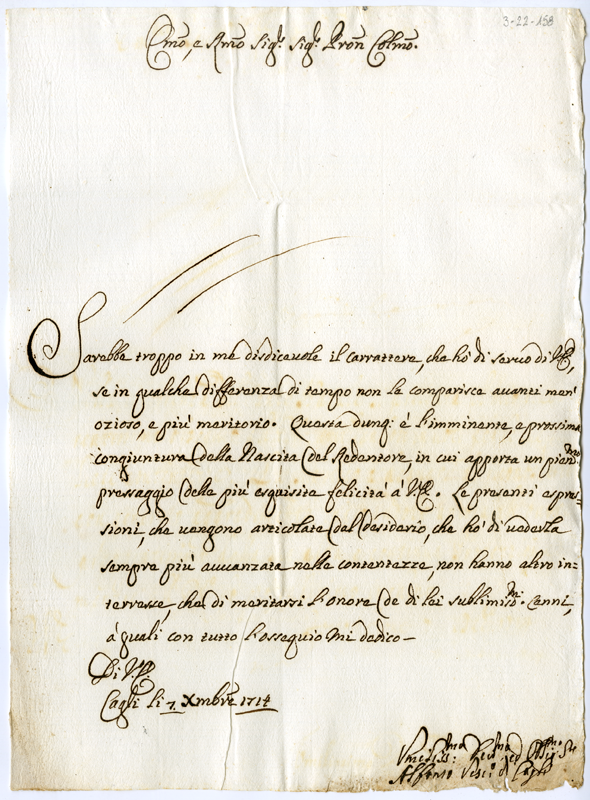 3-22-158
Emo, e Rmo Sigr. Sigr. Pron Colmo.
Sarebbe troppo in me disdicevole il carrattere, che hò di servo di V.E.,
se in qualche differenza di tempo non le comparisce avanti men'
ozioso, e più meritorio. Questa dunq: è l'imminente, e prossima
congiuntura della Nascita del Redentore, in cui apporta un pienmo
pressaggio delle più esquisite felicità à V.E. Le presenti espres-
sioni, che vengono articolate dal desiderio, che hò di vederla
sempre più avvanzata nelle contentezze, non hanno altro in=
terresse, che di meritarsi l'onore de di lei sublimismi. Cenni,
à quali con tutto l'ossequio mi dedico—
Di V.E.
Cagli li 7. Xmbre 1714
Alfonso Vesco di Cagli